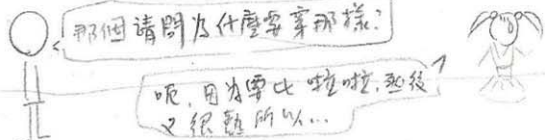 那個請問為什麼要穿那樣?
呃,因為要比啦啦,然後
又很熱所以...